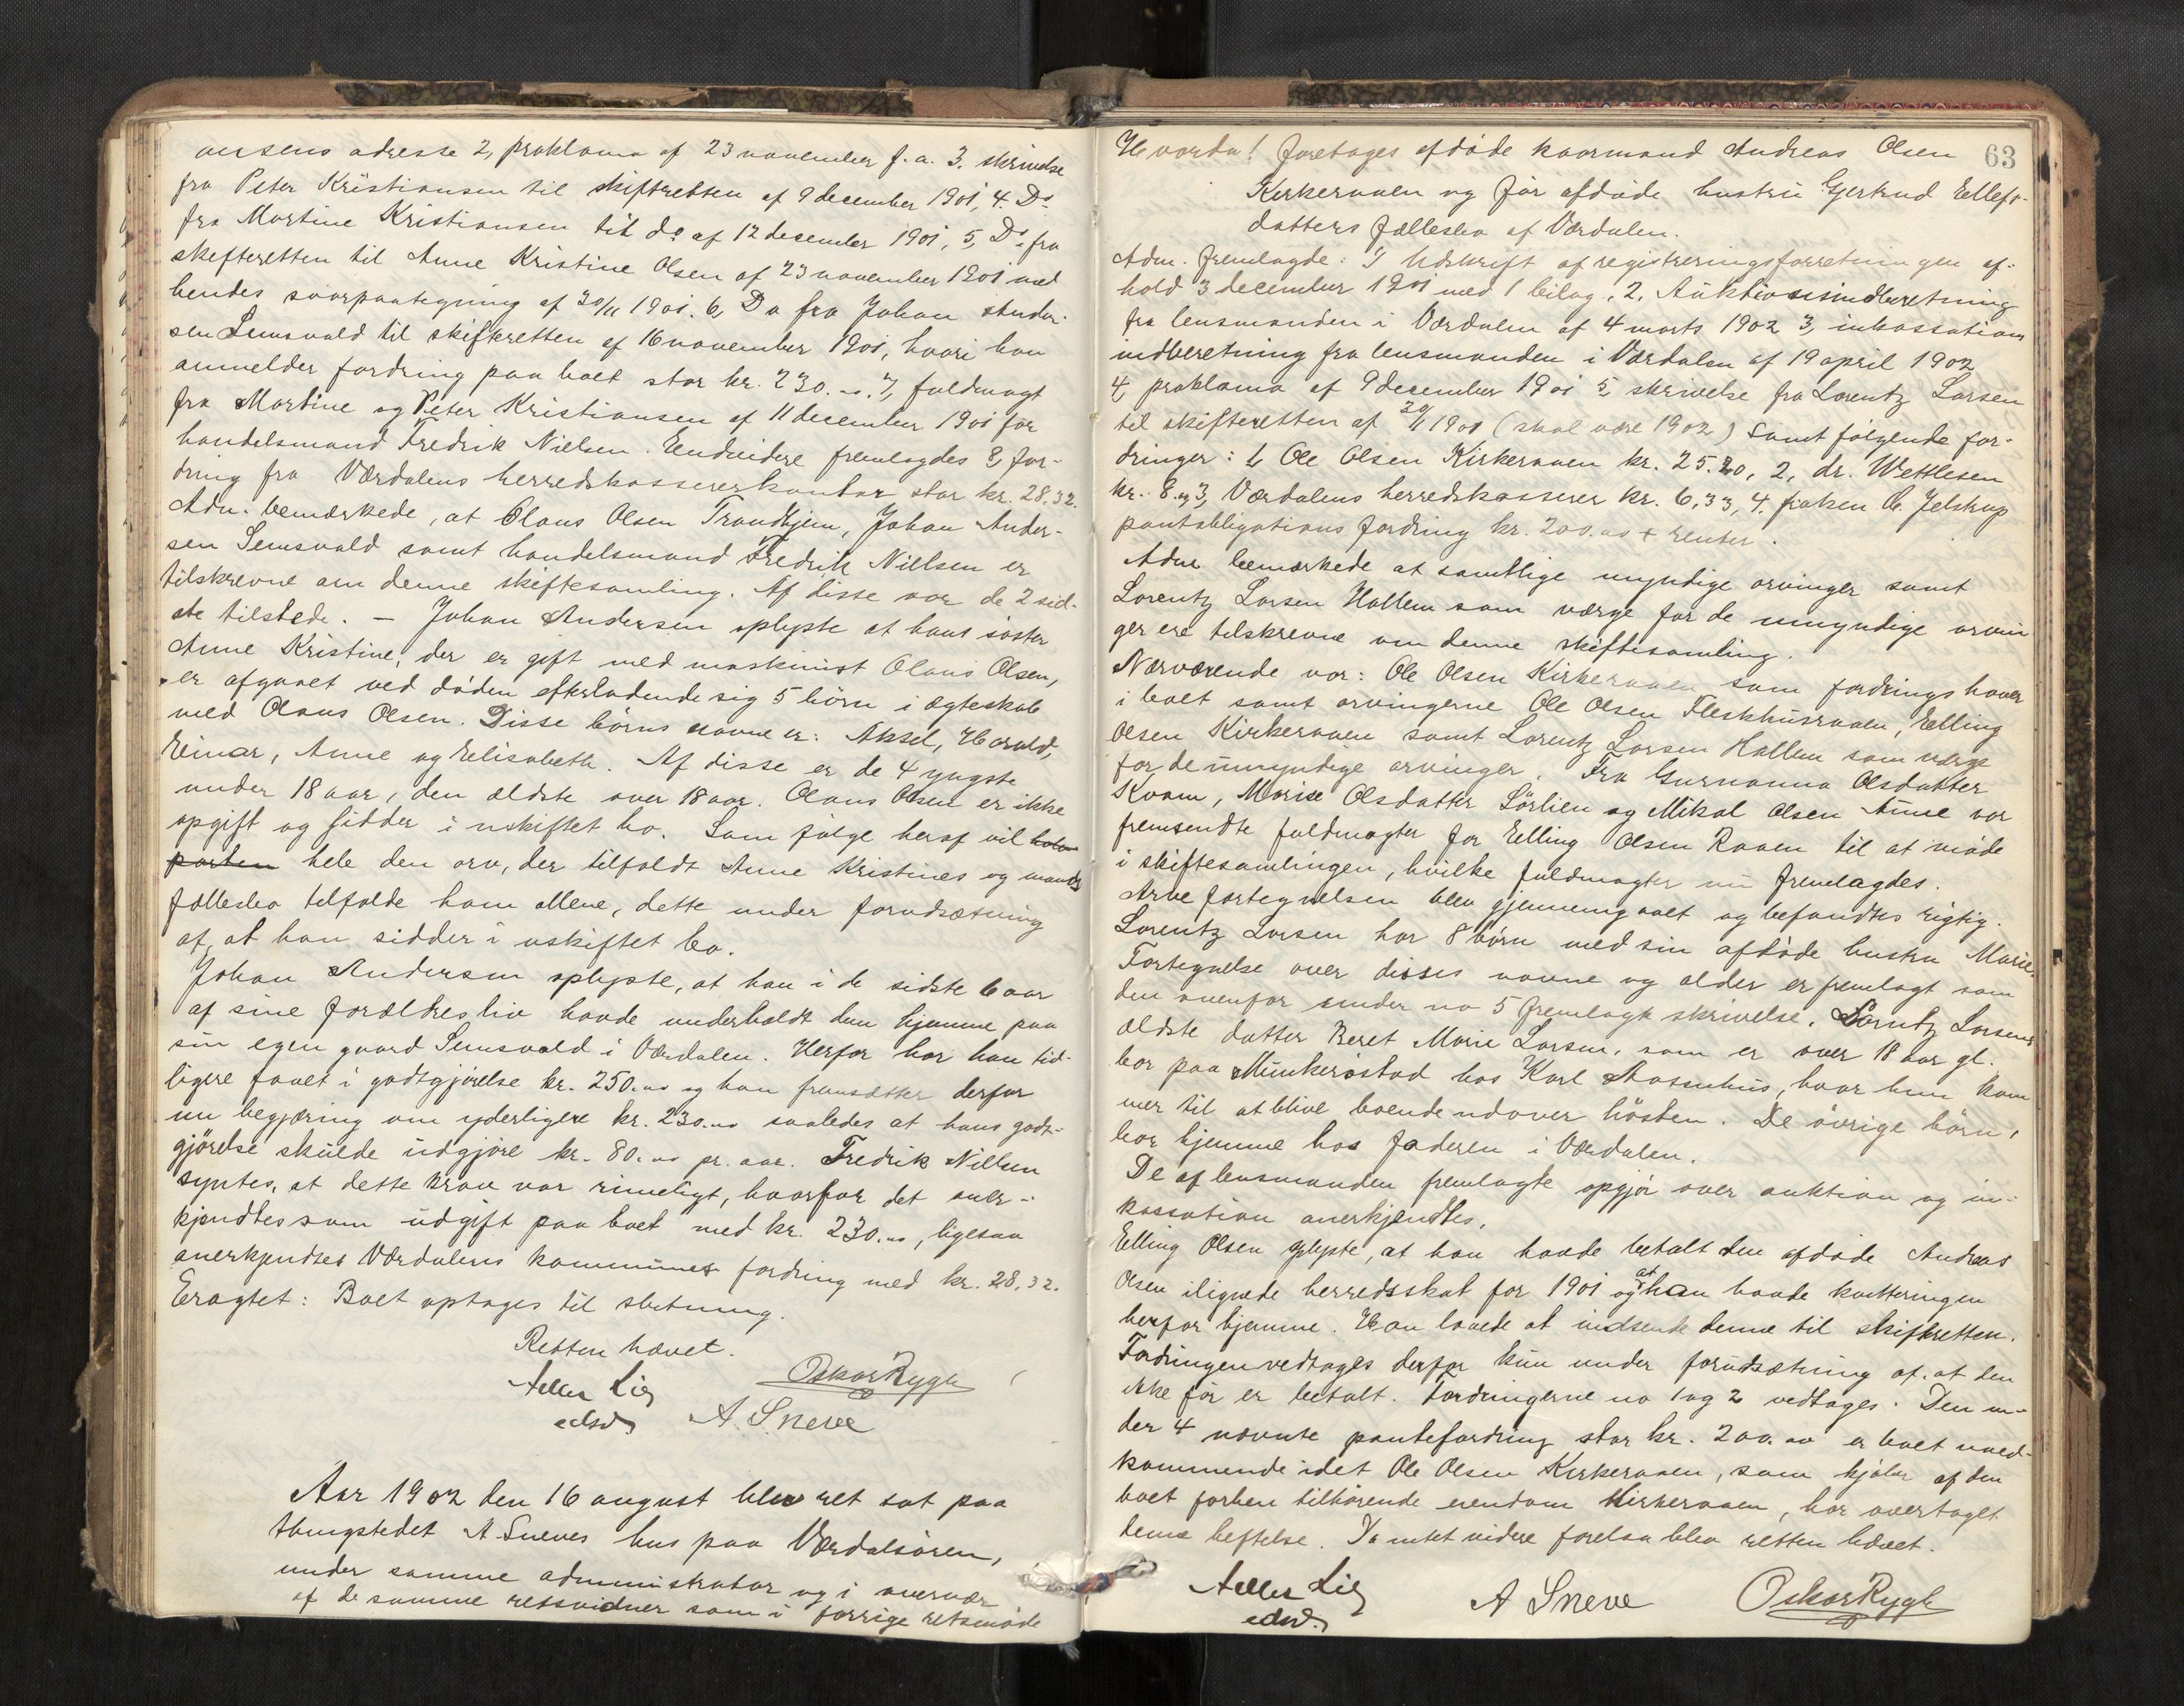 ansens adresse 2, proklama af 23 november f. a. 3. skrivelse
fra Peter Kristiansen til skifteretten af 9 december 1901, 4. Do
fra Martine Kristiansen til do af 12 desember 1901, 5, Do fra
skifteretten til Anne Kristine Olsen af 23 november 1901 med
hendes svarpaategning af 30/11 1901. 6, Do fra Johan Ander-
sen Semsvald til skifteretten af 16 november 1901, hvori han
anmelder fordring paa boet stor kr. 230.00. 7, fuldmagt
fra Martine og Peter Kristiansen af 11 december 1901 for
handelsmand Fredrik Nielsen. Endvidere fremlagdes 8, for-
dring fra Værdalens herredskassererkontor stor kr. 28.32.
Adm. bemærkede, at Olaus Olsen Trondhjem, Johan Ander-
sen Semsvald samt handelsmand Fredrik Nielsen er
tilskrevne om denne skiftesamling. Af disse var de 2 sid-
ste tilstede. — Johan Andersen oplyste at hans søster
Anne Kristine, der er gift med maskinist Olaus Olsen,
er afgaaet ved døden efterladende sig 5 børn i ægteskab
med Olaus Olsen. Disse børns navne er: Aksel, Harald,
Einar, Anne og Elisabeth. Af disse er de 4 yngste
under 18 aar, den ældste over 18 aar. Olaus Olsen er ikke
opgift og sidder i uskiftet bo. Som følge heraf vil
parten hele den arv, der tilfaldt Anne Kristines og mands
fællesbo tilfalde ham allene, dette under forudsætning
af, at han sidder i uskiftet bo.
Johan Andersen oplyste, at han i de sidste 6 aar
af sine forældres liv havde underholdt dem hjemme paa
sin egen gaard Semsvald i Værdalen. Herfor har han tid-
ligere faaet i godtgjørelse kr. 250.00 og han fremsætter derfor
nu begjæring om yderligere kr. 230.00 saaledes at hans godt-
gjørelse skulde udgjøre kr. 80.00 pr. aar. Fredrik Nielsen
syntes, at dette krav var rimeligt, hvorfor det aner-
kjendtes som udgift paa boet med kr. 230.00, ligesaa
anerkjendtes Værdalens kommunes fordring med kr. 28.32.
Eragtet: Boet optages til slutning.
Retten hævet.
Oskar Rygh
A. Sneve
Aar 1902 den 16 august blev ret sat paa
thingstedet A Sneves hus paa Værdalsøren,
under samme administrator og i overvær
af de samme retsvidner som i forrige retsmøde
63
Hvorda! foretages afdøde kaarmand Andreas Olsen
Kirkeraaen og før afdøde hustru Gjertrud Ellefs-
datters fællesbo af Værdalen.
Adm. fremlagde: 1 Udskrift af registreringsforretningen af-
hold 3 december 1901 med 1 bilag, 2. Auktionsindberetning
fra lensmanden i Værdalen af 4 marts 1902 3, inkassations
indberetning fra lensmanden i Værdalen af 19 april 1902
4, proklama af 9 december 1901 5, skrivelse fra Lorentz Larsen
til skifteretten af 20/1 1901 (skal være 1902) samt følgende for-
dringer: 1, Ole Olsen Kirkeraaen kr. 25.20, 2, dr. Wettlesen
kr. 8.00, 3, Værdalens herredskasserer kr. 6.33, 4, frøken C. Jelstrup
pantobligations fordring kr. 200.00 + renter.
Adm bemærkede at samtlige myndige arvinger samt
Lorentz Larsen Hallem som værge for de umyndige arvin
ger ere tilskrevne om denne skiftesamling.
Nærværende var: Ole Olsen Kirkeraaen som fordringshaver
i boet samt arvingerne Ole Olsen Fleskhusraaen, Elling
Olsen Kirkeraaen samt Lorentz Larsen Hallem som værge
for de umyndige arvinger. Fra Gurnanna Olsdatter
Kvam, Marie Olsdatter Sørlien og Mikal Olsen Aune var
fremsendte fuldmagter for Elling Olsen Raaen til at møde
i skiftesamlingen, hvilke fuldmagter nu fremlagdes.
Arvefortegnelsen blev gjennemgaaet og befandtes rigtig.
Lorentz Larsen har 8 børn med sin afdøde hustru Marie.
Fortegnelse over disses navne og alder er fremlagt som
den ovenfor under no 5 fremlagte skrivelse. Lorentz Larsens
ældste datter Beret Marie Larsen, som er over 18 aar gl.
bor paa Munkerøstad hos Karl Aasenhus, hvor hun kom
mer til at blive boende udover høsten. De øvrige børn,
bor hjemme hos faderen i Værdalen.
De af lensmanden fremlagte opgjør over auktion og in-
kassation anerkjendtes.
Elling Olsen oplyste, at han havde betalt den afdøde Andreas
Olsen ilignede herredsskat for 1901 og at han havde kvitteringen
herfor hjemme. Han lovede at indsende denne til skifteretten.
Fordringen vedtages derfor kun under forudsætning af at den
ikke før er betalt. Fordringerne no 1 og 2 vedtages. Den un-
der 4 nævnte pantefordring stor kr. 200.00 er boet uved-
kommende idet Ole Olsen Kirkeraaen, som kjøber af den
boet forhen tilhørende eiendom Kirkeraaen, har overtaget
denne heftelse. Da intet videre forelaa blev retten hævet.
A Sneve
Oskar Rygh